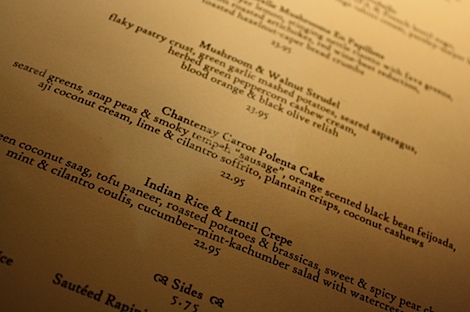 Mushrooms En Papillote
23.95
Mushroom & Walnut Strudel
flaky pastry crust, green garlic mashed potatoes, seared asparagus,
herbed green peppercorn cashew cream,
blood orange & black olive relish
23.95
Chantenay Carrot Polenta Cake
seared greens, snap peas & smoky tempeh "sausage", orange scented black bean feijoada,
aji coconut cream, lime & cilantro soffrito, plantain crisps, coconut cashews
22.95
Indian Rice & Lentil Crepe
coconut saag, tofu paneer, roasted potatoes & brassicas, sweet & spicy pear
mint & cilantro coulis, cucumber-mint-kachumber salad with watercress
22.95
Sides
5.75
Sautéed Rapini